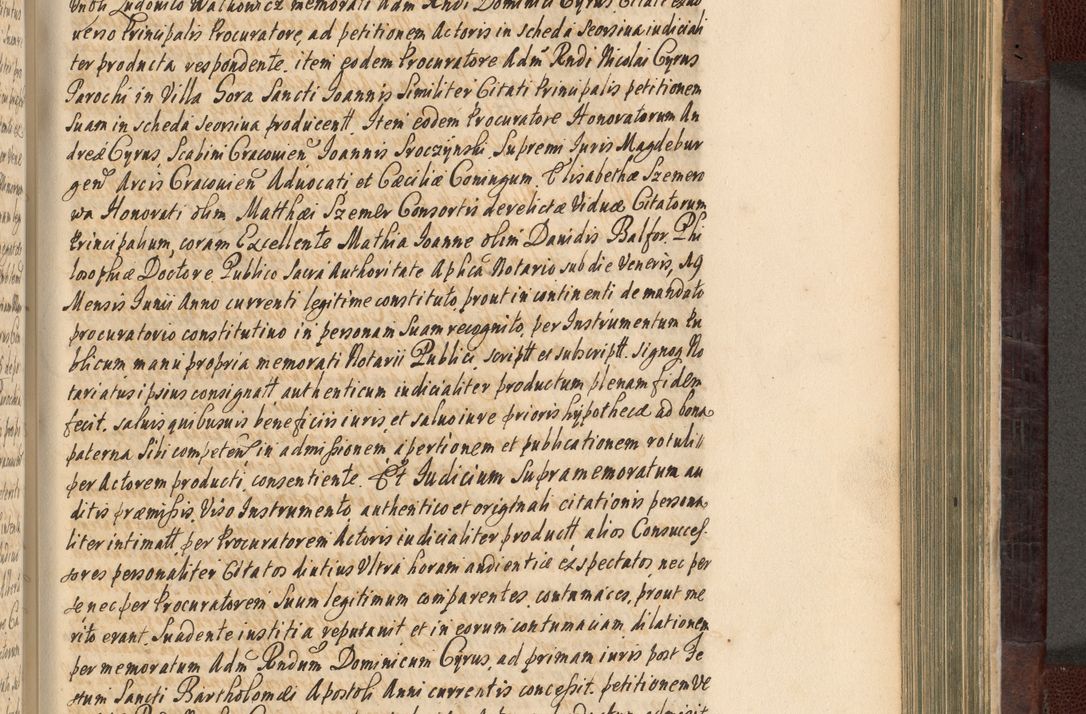 Ludovico Walkowicz memorati Adm Rndi Dominici Cyrus Citati
verso Principalis Procuratore, ad petitionem Actoris in scheda seorsiva iudiciali
ter producta respondente. item eodem Procuratore Adm Rndi Nicolai Cyrus
Parochi in Villa Gora Sancti Joannis Similiter Citati Principalis petitionem
suam in scheda seorsiva producentt. Item eodem Procuratore Honoratorum An
dreæ Cyrus, Scabini Cracovien Joannis Sroczynski, Supremi Juris Magdebur
gen Arcis Cracovien Advocati et Cæciliæ Coniugum, Elisabethæ Szemero
wa Honorati olim Matthæi Szemer Consortis derelictæ Viduæ Citatorum
Principalium, coram Excellente Mathia Joanne olim Davidis Balfor, Phi
losophiæ Doctore Publico Sacra Authoritate Aplica Notario sub die Veneris, 
Mensis Junii Anno currenti legitime constituto, prout in continenti de mandato
procuratorio constitutivo in personam Suam recognito, per Instrumentum Pu
blicum manu propria memorati Notarii Publici scriptt et subscriptt. signoq No
tariatus ipsius consignatt authenticum iudicialiter productum plenam fidem
fecit. salvis quibusvis beneficiis iuris, et salvo iure prioris hypothecæ ad bona
paterna Sibi competen in admissionem apertionem et publicationem rotuli
per Actorem producti, consentiente. Et Judicium Supramemoratum au
ditis præmissis, Viso Instrumento authentico et originali citationis persona
liter intimatt, per Procuratorem Actoris iudicialiter productt alios Consucces
sores personaliter Citatos diutius Ultra horam audientiæ expectatos nec per
se nec per Procuratorem suum legitimum comparentes, contumaces, prout me
rito erant, Suadente iustitia reputavit et in eorum contumaciam dilationem
per memoratum Adm Rndum Dominicum Cyrus, ad primam iuris post Fe
stum Sancti Bartholomæi Apostoli Anni currentis concessit. petitionem Ve